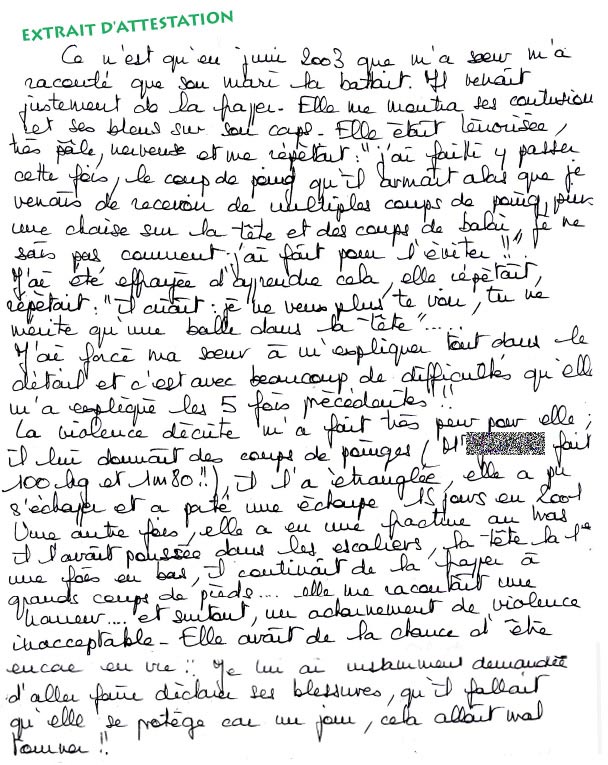 EXTRAIT D'ATTESTATION
Ce n'est qu'en juin 2003 que m'a sœur m'a
raconté que son mari la battait. Il venait
justement de la frapper - Elle me montra ses contusions
et ses bleus sur son corps - Elle était térrorisée,
très pâle, nerveuse et me répétait : "j'ai failli y passer
cette fois, le coup de poing qu'il armait alors que je
venais de recevoir de multiples coups de poing, puis
une chaise sur la tête et des coups de balai, je ne
sais pas comment j'ai fait pour l'éviter !!".
J'ai été effrayée d'apprendre cela, elle répétait,
répétait : "il criait : je ne veux plus te voir, tu ne
mérite qu'une balle dans la tête".....
J'ai forcé ma sœur à m'expliquer tout dans le
détail et c'est avec beaucoup de difficultés qu'elle
m'a expliqué les 5 fois précédentes !!
La violence décrite m'a fait très peur pour elle ;
il lui donnait des coups de poings (Mr fait
100 kg et 1m80 !!), il l'a étranglée, elle a pu
s'échapper et a porté une écharpe 15 jours en 2001
Une autre fois, elle a eu une fracture au bras
il l'avait poussée dans les escaliers, la tête la 1ère
une fois en bas, il continuait de la frapper à
grands coups de pieds.... elle me racontait une
horreur.... et surtout, un acharnement de violence
inacceptable - Elle avait de la chance d'être
encore en vie !! Je lui ai instamment demandé
d'aller faire déclarer ses blessures, qu'il fallait
qu'elle se protège car un jour, cela allait mal
tourner !!